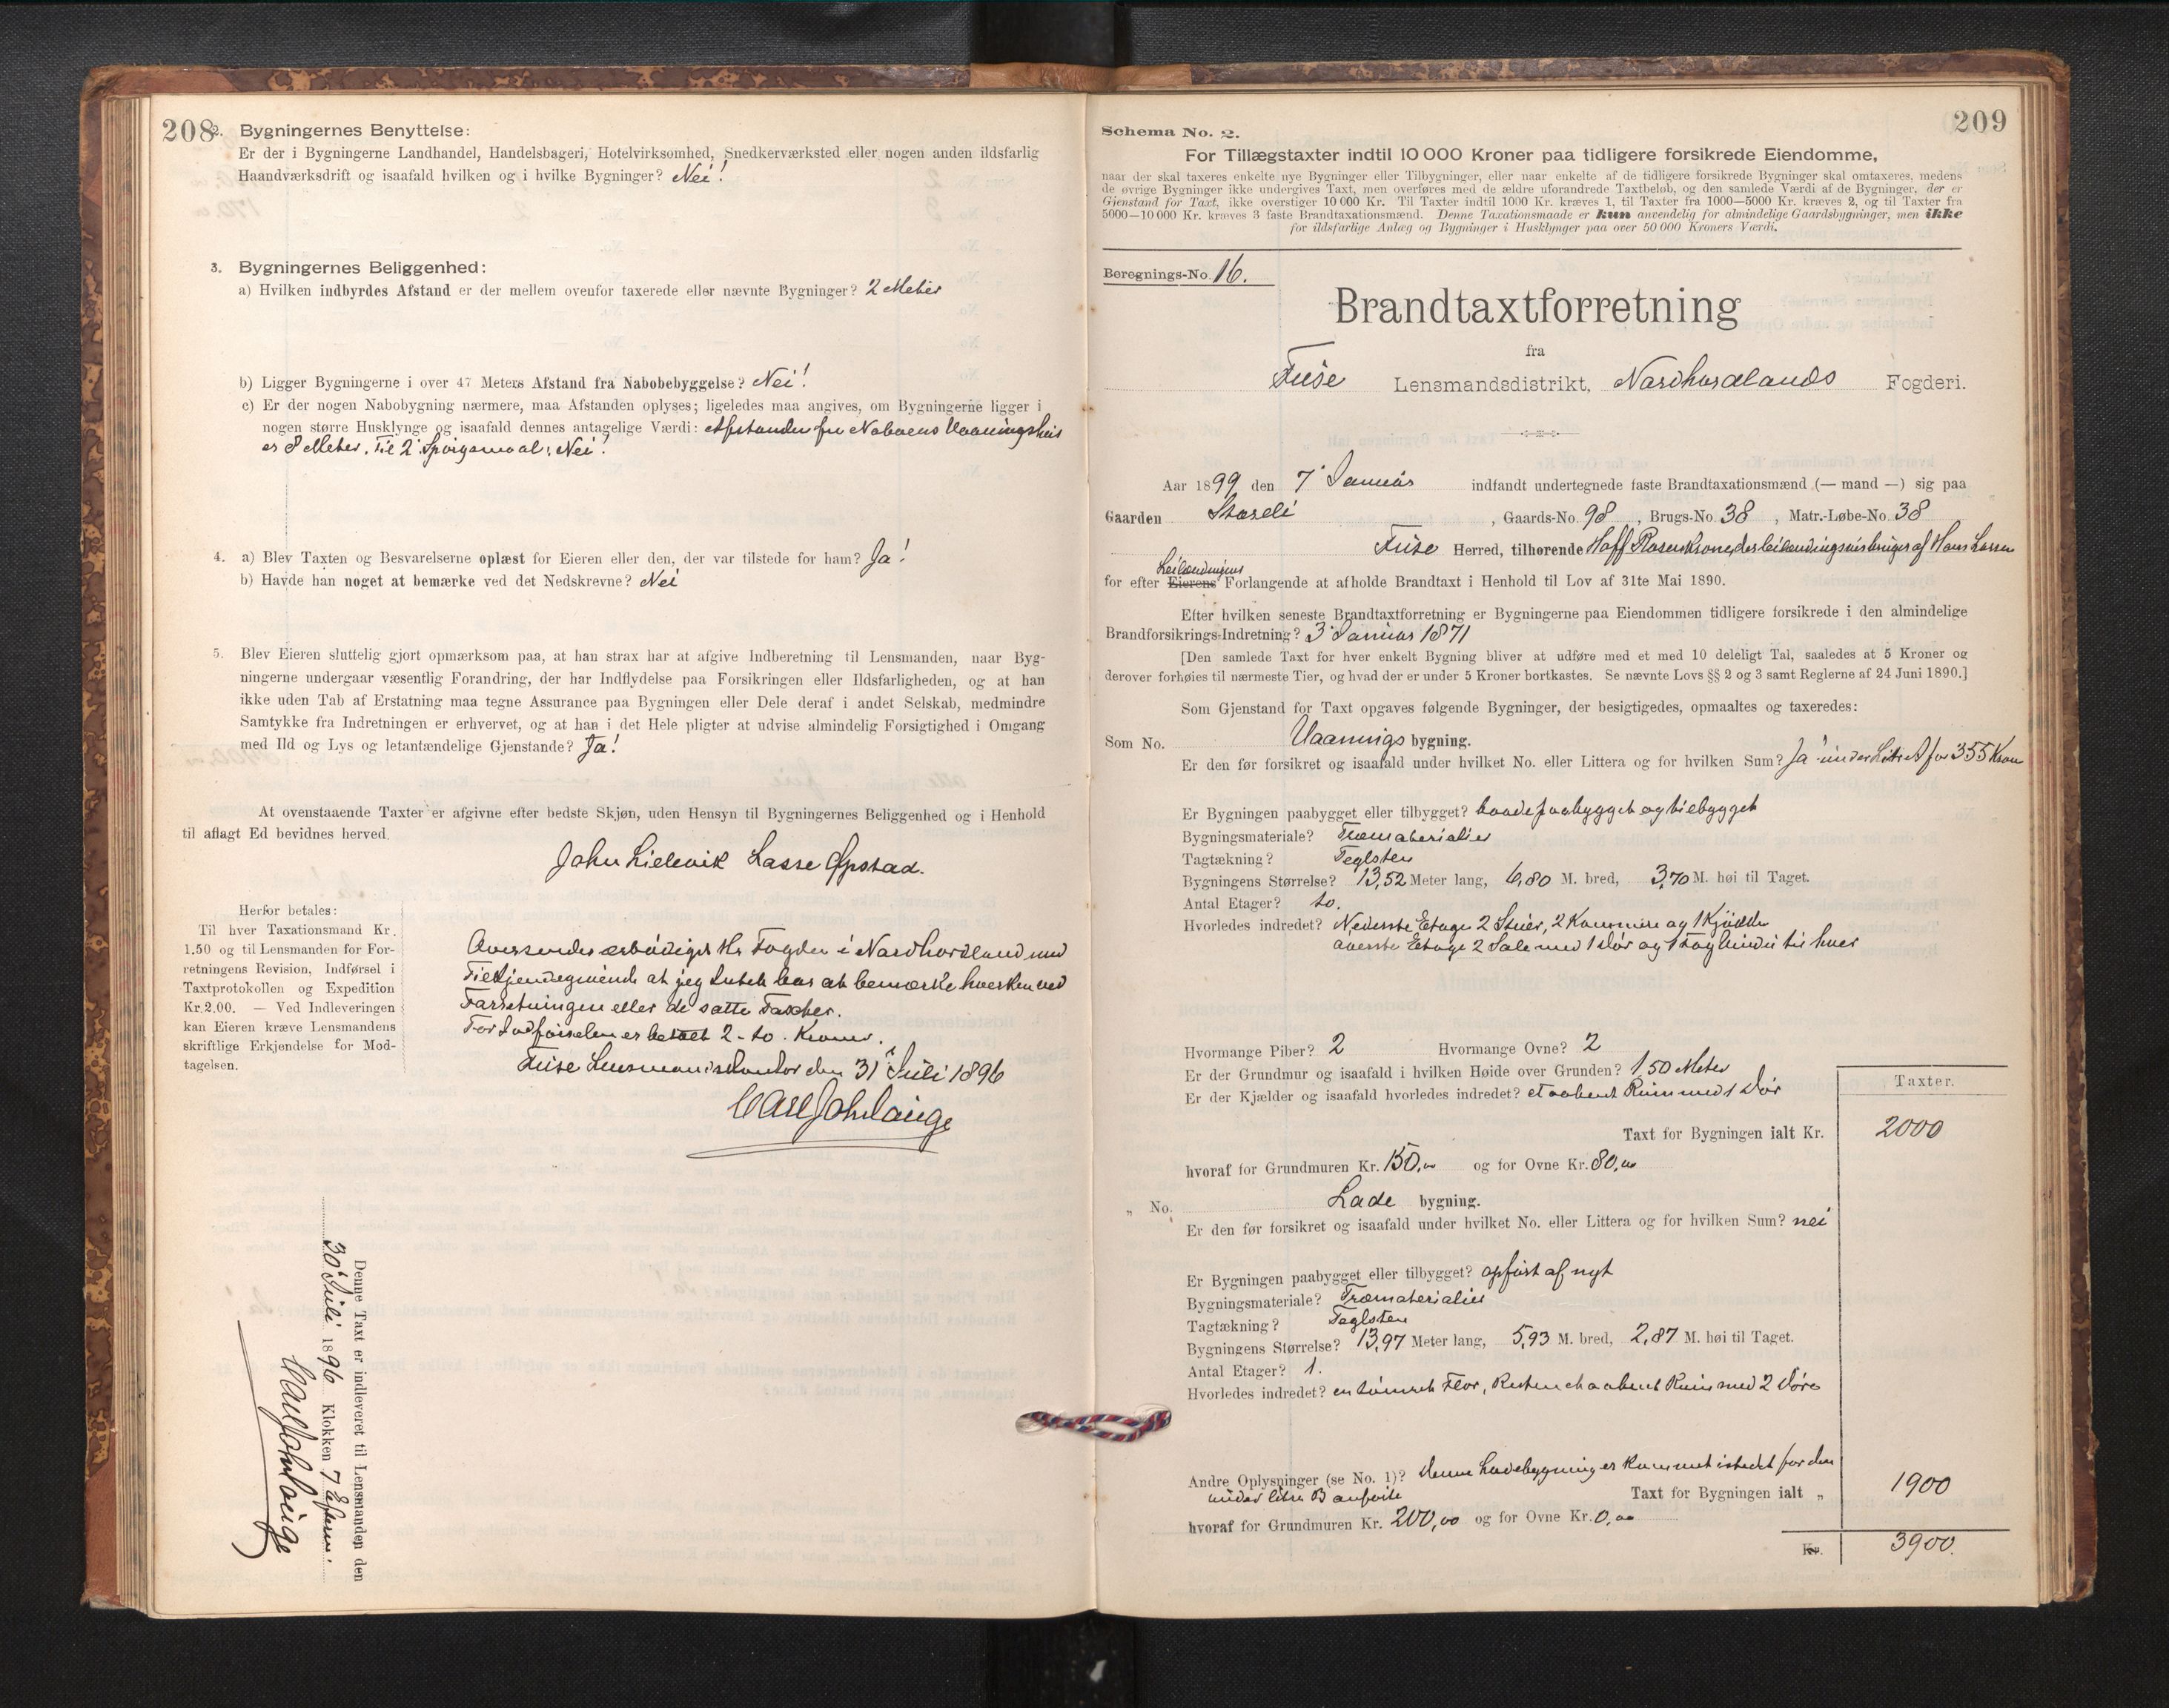 208
2. Bygningernes Benyttelse:
Er der i Bygningerne Landhandel, Handelsbageri, Hotelvirksomhed, Snedkerværksted eller nogen anden ildsfarlig
Haandværksdrift og isaafald hvilken og i hvilke Bygninger? Nei!
3. Bygningernes Beliggenhed:
a) Hvilken indbyrdes Afstand er der mellem ovenfor taxerede eller nævnte Bygninger? 2 Meter
b) Ligger Bygningerne i over 47 Meters Afstand fra Nabobebyggelse? Nei!
c) Er der nogen Nabobygning nærmere, maa Afstanden oplyses; ligeledes maa angives, om Bygningerne ligger i
nogen større Husklynge og isaafald dennes antagelige Værdi: Afstanden fra Naboens Vaaningshus
er 8 Meter. Til 2' Spørgsmaal: Nei!
4. a) Blev Taxten og Besvarelserne oplæst for Eieren eller den, der var tilstede for ham? Ja!
b) Havde han noget at bemærke ved det Nedskrevne? Nei
5. Blev Eieren sluttelig gjort opmærksom paa, at han strax har at afgive Indberetning til Lensmanden, naar Byg-
ningerne undergaar væsentlig Forandring, der har Indflydelse paa Forsikringen eller Ildsfarligheden, og at han
ikke uden Tab af Erstatning maa tegne Assurance paa Bygningen eller Dele deraf i andet Selskab, medmindre
Samtykke fra Indretningen er erhvervet, og at han i det Hele pligter at udvise almindelig Forsigtighed i Omgang
med Ild og Lys og letantændelige Gjenstande? Ja!
At ovenstaaende Taxter er afgivne efter bedste Skjøn, uden Hensyn til Bygningernes Beliggenhed og i Henhold
til aflagt Ed bevidnes herved.
John Lielevik Lasse Opstad.
Herfor betales:
Til hver Taxationsmand Kr.
1.50 og til Lensmanden for For-
retningens Revision, Indførsel i
Taxtprotokollen og Expedition
Kr. 2.00. — Ved Indleveringen
kan Eieren kræve Lensmandens
skriftlige Erkjendelse for Mod-
tagelsen.
Oversendes ærbødigst Hr Fogden i Nordhordland med
Tilkjendegivende at jeg Intet har at bemærke hverken ved
Forretningen eller de satte Taxter.
For Indførselen er betalt 2 - to. Kroner.
Fuse Lensmandskontor den 31' Juli 1896
Carl Joh Lange
Denne Taxt er indleveret til Lensmanden den
30' Juli 1896 Klokken 7 Efterm.
Carl Joh Lange
209
Schema No. 2.
For Tillægstaxter indtil 10 000 Kroner paa tidligere forsikrede Eiendomme,
naar der skal taxeres enkelte nye Bygninger eller Tilbygninger, eller naar enkelte af de tidligere forsikrede Bygninger skal omtaxeres, medens
de øvrige Bygninger ikke undergives Taxt, men overføres med de ældre uforandrede Taxtbeløb, og den samlede Værdi af de Bygninger, der er
Gjenstand for Taxt, ikke overstiger 10 000 Kr. Til Taxter indtil 1000 Kr. kræves 1, til Taxter fra 1000—5000 Kr. kræves 2, og til Taxter fra
5000—10 000 Kr. kræves 3 faste Brandtaxationsmænd. Denne Taxationsmaade er kun anvendelig for almindelige Gaardsbygninger, men ikke
for ildsfarlige Anlæg og Bygninger i Husklynger paa over 50 000 Kroners Værdi.
Beregnings-No. 16.
Brandtaxtforretning
fra
Fuse Lensmandsdistrikt, Nordhordlands Fogderi.
Aar 1899 den 7' Januar indfandt undertegnede faste Brandtaxationsmænd (— mand —) sig paa
Gaarden Storeli , Gaards-No. 98 , Brugs-No. 38 , Matr.-Løbe-No. 38
Fuse Herred, tilhørende Hoff Rosenkrone, der leilendingsvis bruges af Hans Larsen
Leilændingens
for efter Eierens Forlangende at afholde Brandtaxt i Henhold til Lov af 31te Mai 1890.
Efter hvilken seneste Brandtaxtforretning er Bygningerne paa Eiendommen tidligere forsikrede i den almindelige
Brandforsikrings-Indretning? 3' Januar 1871
[Den samlede Taxt for hver enkelt Bygning bliver at udføre med et med 10 deleligt Tal, saaledes at 5 Kroner og
derover forhøies til nærmeste Tier, og hvad der er under 5 Kroner bortkastes. Se nævnte Lovs §§ 2 og 3 samt Reglerne af 24 Juni 1890.]
Som Gjenstand for Taxt opgaves følgende Bygninger, der besigtigedes, opmaaltes og taxeredes:
Som No. Vaanings bygning.
Er den før forsikret og isaafald under hvilket No. eller Littera og for hvilken Sum? Ja under Litr A for 355 Kron
Er Bygningen paabygget eller tilbygget? baade paabygget og tilbygget
Bygningsmateriale? Træmaterialier
Tagtækning? Teglsten
Bygningens Størrelse? 13,52 Meter lang, 6,80 M. bred, 3,70 M. høi til Taget.
Antal Etager? to.
Hvorledes indredet? Nederste Etage 2 Stuer, 2 Kammere og 1 Kjøkken
øverste Etage 2 Sale med 1 dør og 1 Fag Vindu til hver
Hvormange Piber? 2 Hvormange Ovne? 2
Er der Grundmur og isaafald i hvilken Høide over Grunden? 1,50 Meter
Er der Kjælder og isaafald hvorledes indredet? et aabent Rum med 1 Dør
Taxter.
Taxt for Bygningen ialt Kr. 2000
hvoraf for Grundmuren Kr. 150,00 og for Ovne Kr. 80,00
„ No. Lade bygning.
Er den før forsikret og isaafald under hvilket No. eller Littera og for hvilken Sum? nei
Er Bygningen paabygget eller tilbygget? opført af nyt
Bygningsmateriale? Træmaterialier
Tagtækning? Teglsten
Bygningens Størrelse? 13,97 Meter lang, 5,93 M. bred, 2,87 M. høi til Taget.
Antal Etager? 1.
Hvorledes indredet? en tømret Flor, Resten et aabent Rum med 2 døre
Andre Oplysninger (se No. 1)? denne Ladebygning er kommet istedet for den
under litra B anførte Taxt for Bygningen ialt „ 1900
hvoraf for Grundmuren Kr. 200,00 og for Ovne Kr. 0,00
Kr. 3900.